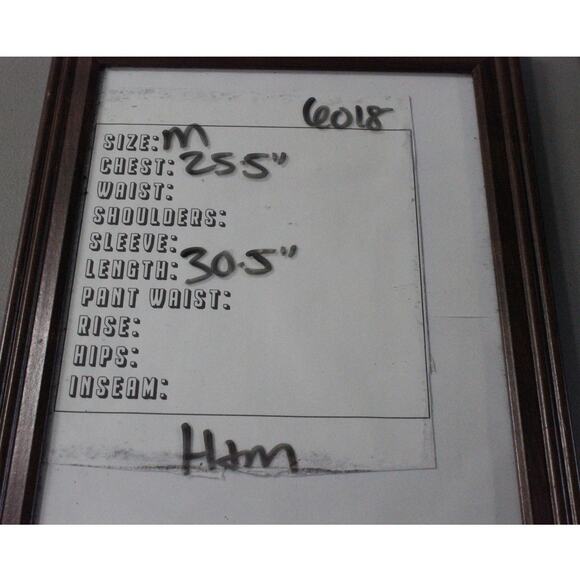 6018
SIZE: M
CHEST: 25.5"
WAIST:
SHOULDERS:
SLEEVE:
LENGTH: 30.5"
PANT WAIST:
RISE:
HIPS:
INSEAM:
H+m